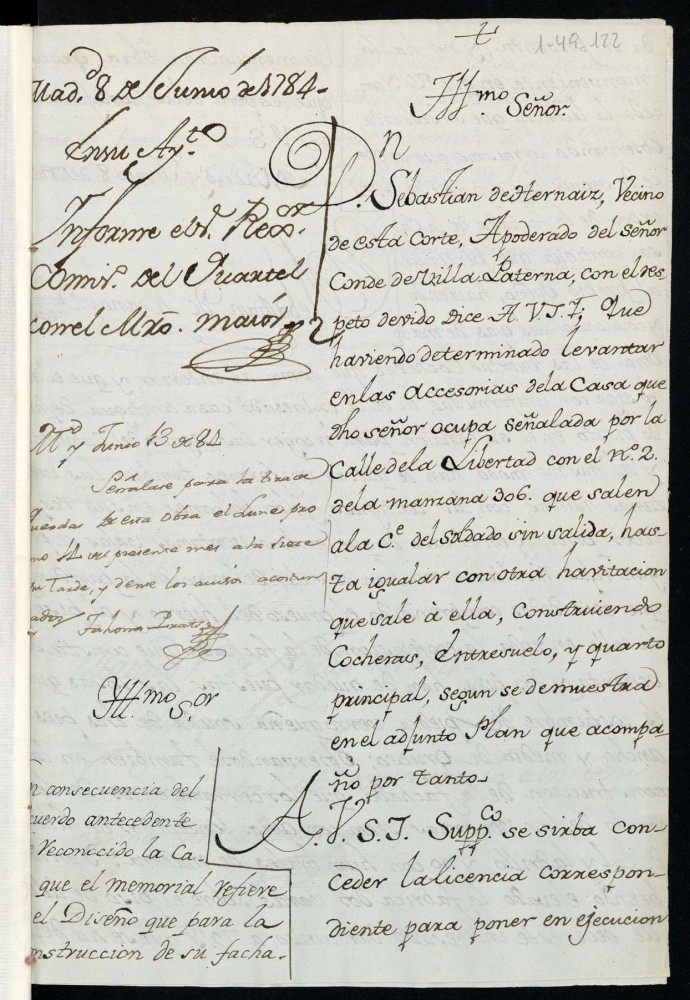 +
1-49-122
Mad.ᵈ 8 de Junio de 1784-
En su Ay.to
Informe el S.r Rex.or
Comis.o del Quartel
con el Mro. maior
M.d y Junio 13 de 84
Señalase para la tira de
cuerdas de esta obra el Lune pro
mo 14 del presente mes a la siete
su Tarde, y dense los avisos acostum
ados
Yll.mo S.or
n consecuencia del
cuerdo antecedente
e reconocido la Ca-
que el memorial refiere
el Diseño que para la
nstruccion de su facha-
Yll.mo Señor.
D.n
Sebastian de Hernaiz, Vecino
de esta Corte, Apoderado del Señor
Conde de Villa Paterna, con el res-
peto devido dice A V.S.I; Que
haviendo determinado levantar
en las accesorias dela Casa que
dho señor ocupa señalada por la
Calle dela Libertad con el N.o 2.
dela manzana 306. que salen
a la C.e del Sabado sin salida, has-
ta igualar con otra havitacion
que sale à ella, Construiendo
Cocheras, Entresuelo, y quarto
principal, segun se demuestra
en el adjunto Plan que acompa-
ño por tanto-
A. V. S. I. Supp.co se sirba con-
ceder la licencia correspon-
diente para poner en ejecucion